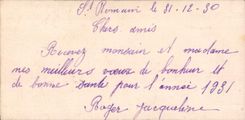 St Romain le 31-12-30
Chers amis
Recevez monsieur et madame
mes meilleurs vœux de bonheur et
de bonne santé pour l'année 1931
Roger Jacqueline